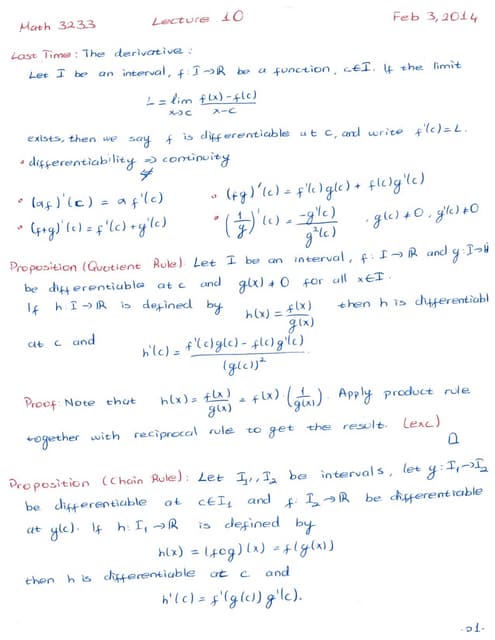 Math 3233 Lecture 10 Feb 3, 2014
Last Time: The derivative:
Let I be an interval, f: I→ℝ be a function, c∈I. If the limit
L = lim_{x→c} (f(x)-f(c))/(x-c)
exists, then we say f is differentiable at c, and write f'(c)=L.
• differentiability ⇒ continuity
⇍
• (af)'(c) = a f'(c) • (fg)'(c) = f'(c)g(c) + f(c)g'(c)
• (f+g)'(c) = f'(c)+g'(c) • (1/g)'(c) = -g'(c)/g²(c) . g(c)≠0, g'(c)≠0
Proposition (Quotient Rule): Let I be an interval, f: I→ℝ and g: I→ℝ
be differentiable at c and g(x)≠0 for all x∈I.
If h: I→ℝ is defined by h(x) = f(x)/g(x) then h is differentiabl
at c and
h'(c) = (f'(c)g(c) - f(c)g'(c))/(g(c))²
Proof: Note that h(x) = f(x)/g(x) = f(x)·(1/g(x)). Apply product rule
together with reciprocal rule to get the result. (exc)
□
Proposition (Chain Rule): Let I₁, I₂ be intervals, let g: I₁→I₂
be differentiable at c∈I₁ and f: I₂→ℝ be differentiable
at g(c). If h: I₁→ℝ is defined by
h(x) = (f∘g)(x) = f(g(x))
then h is differentiable at c and
h'(c) = f'(g(c)) g'(c).
-21-